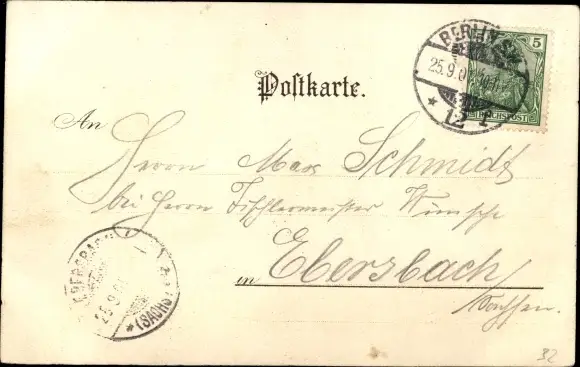 BERLIN S.W.
25.9.0
* 12 *
5
REICHSPOST
Postkarte.
An
Herrn Max Schmidt
bei Herrn Tischlermeister Wünsche
in Ebersbach
Sachsen.
EBERSBACH
25.9.0
* (SACHS)
32